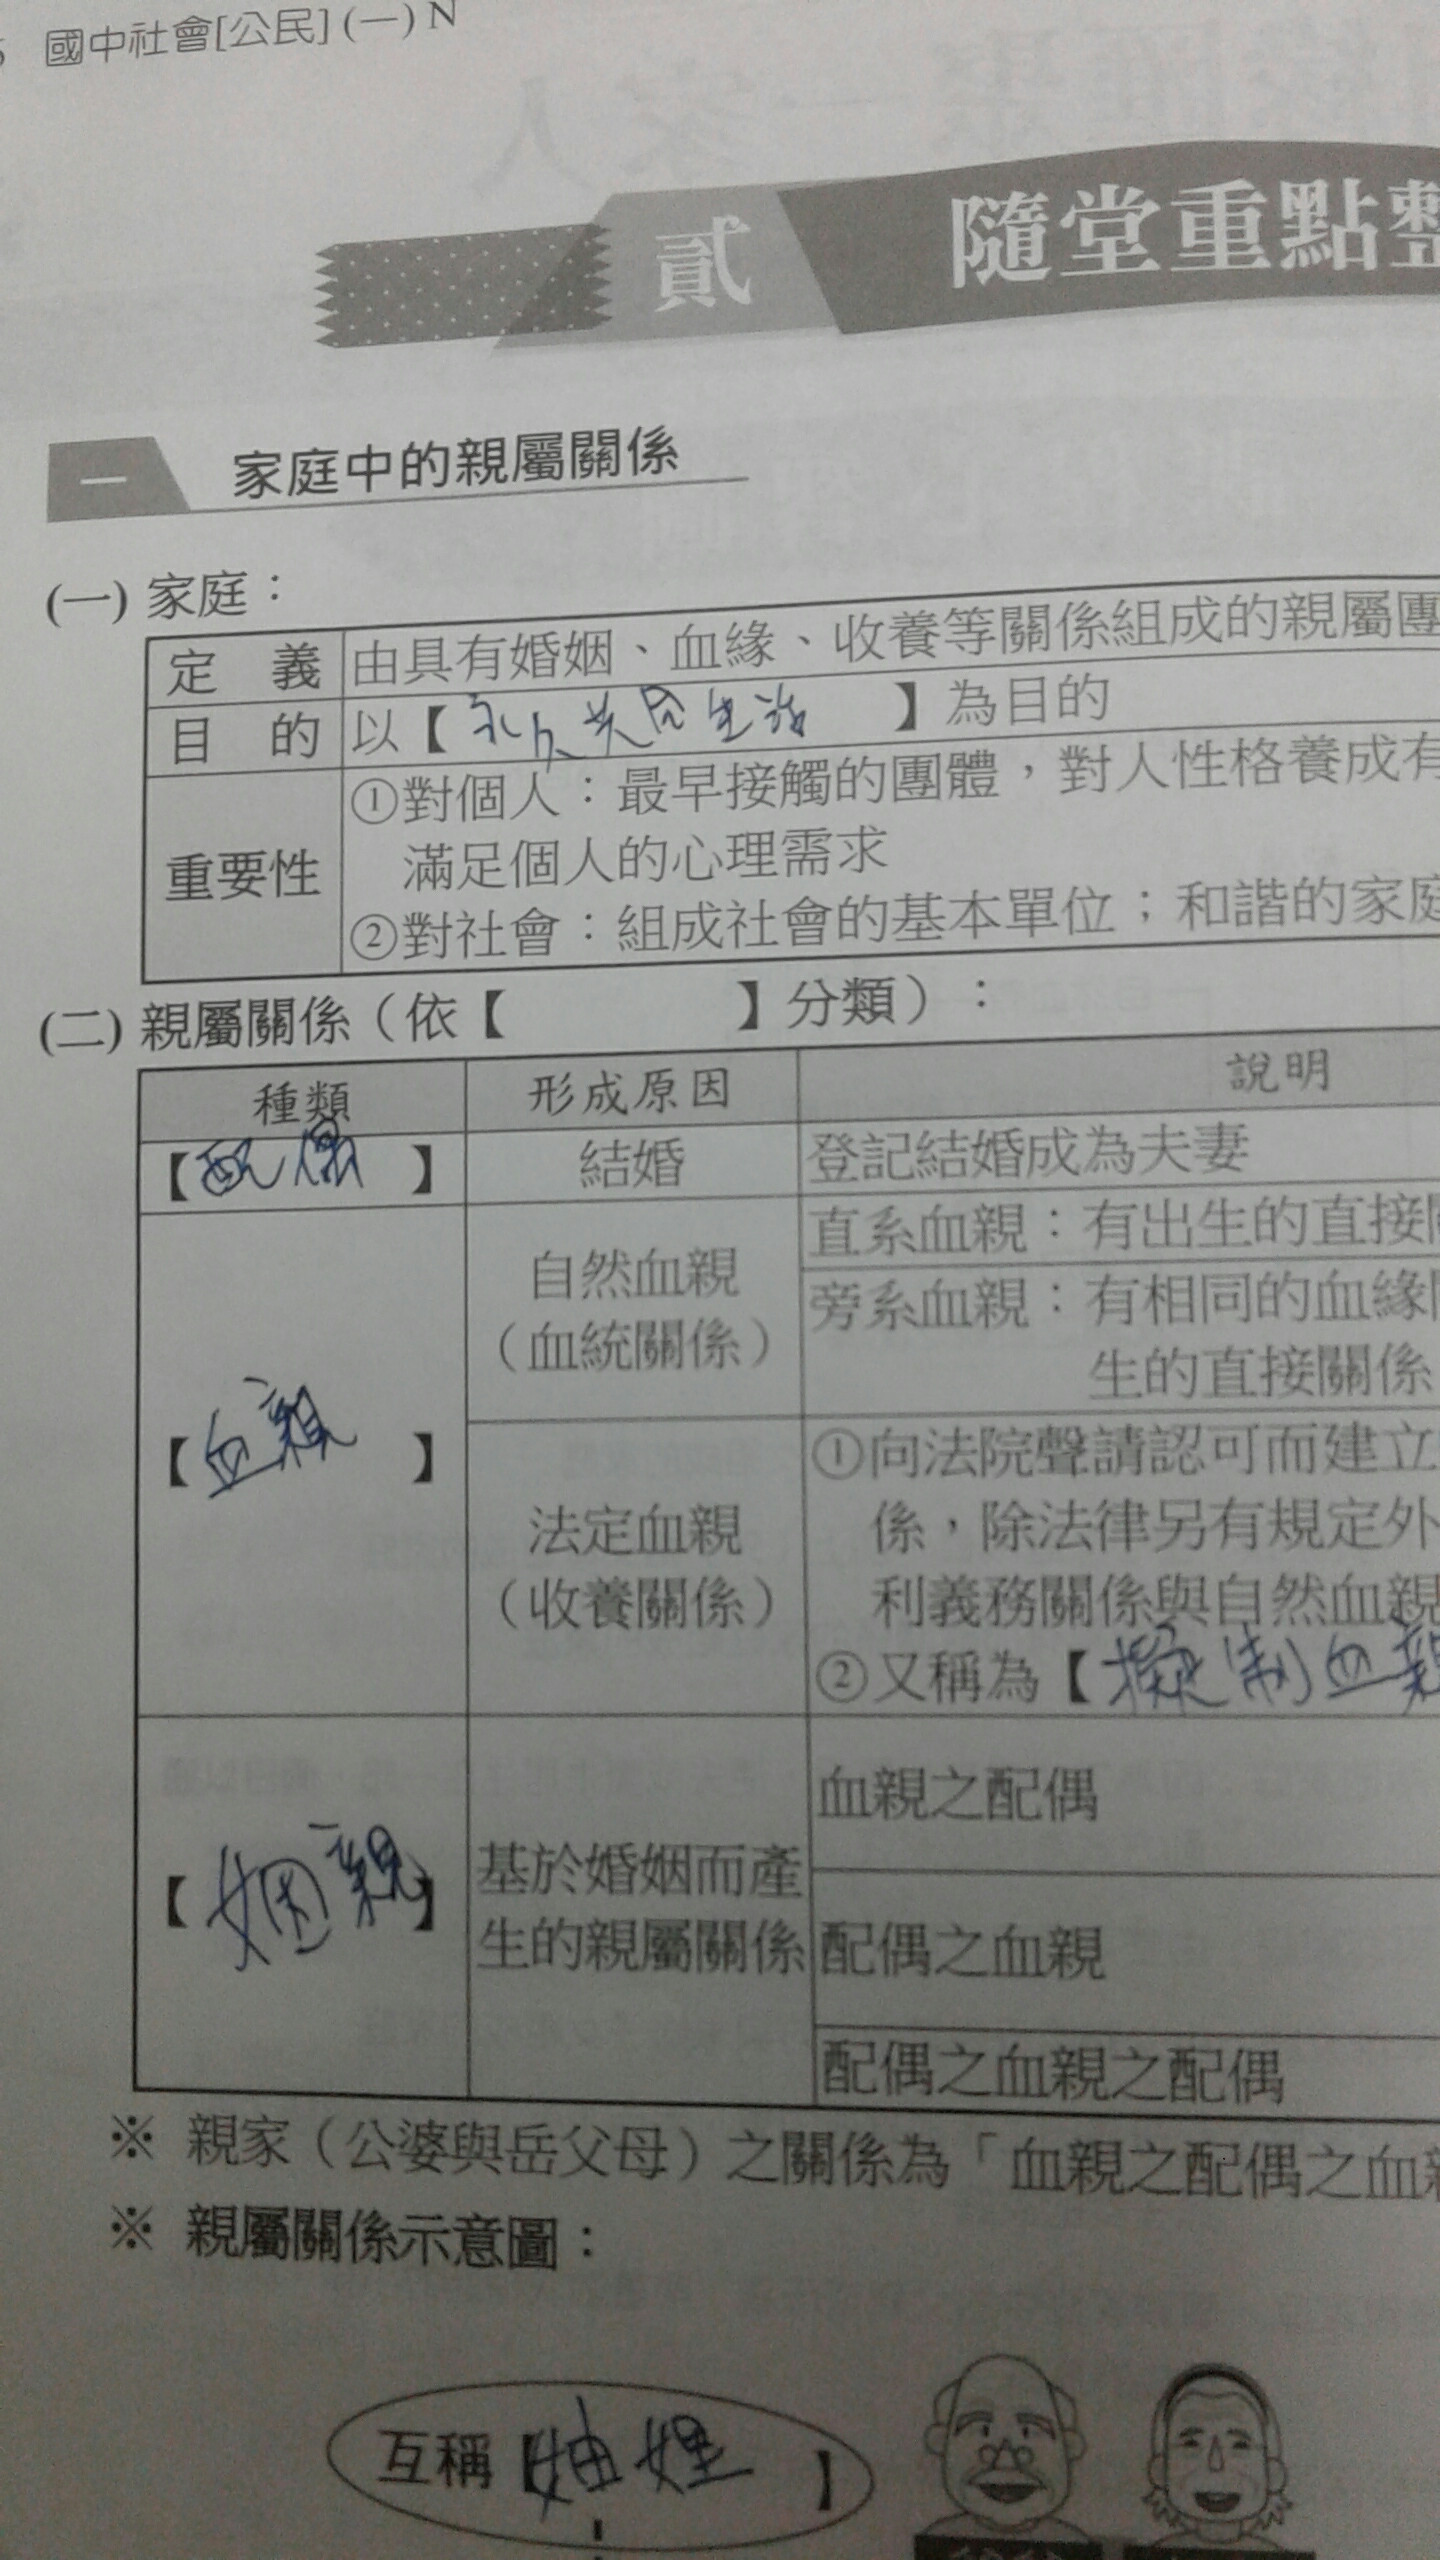 國中社會[公民] (一) N
貳 隨堂重點整
一 家庭中的親屬關係
(一) 家庭：
定 義 由具有婚姻、血緣、收養等關係組成的親屬團
目 的 以【永久共同生活】為目的
重要性 ①對個人：最早接觸的團體，對人性格養成有
滿足個人的心理需求
②對社會：組成社會的基本單位；和諧的家庭
(二) 親屬關係（依【 】分類）：
種類 形成原因 說明
【配偶】 結婚 登記結婚成為夫妻
【血親】 自然血親
（血統關係）
直系血親：有出生的直接關
旁系血親：有相同的血緣關
生的直接關係
法定血親
（收養關係）
①向法院聲請認可而建立
係，除法律另有規定外
利義務關係與自然血親
②又稱為【擬制血親
【姻親】 基於婚姻而產
生的親屬關係
血親之配偶
配偶之血親
配偶之血親之配偶
※ 親家（公婆與岳父母）之關係為「血親之配偶之血親
※ 親屬關係示意圖：
互稱【妯娌】